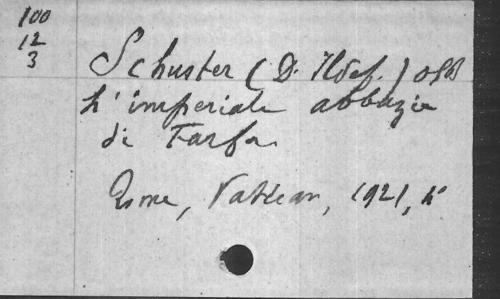 100
12
3
Schuster (D. Ildef.) OSB
L'imperiale abbazia
di Farfa
Rome, Vatican, 1921, 4°